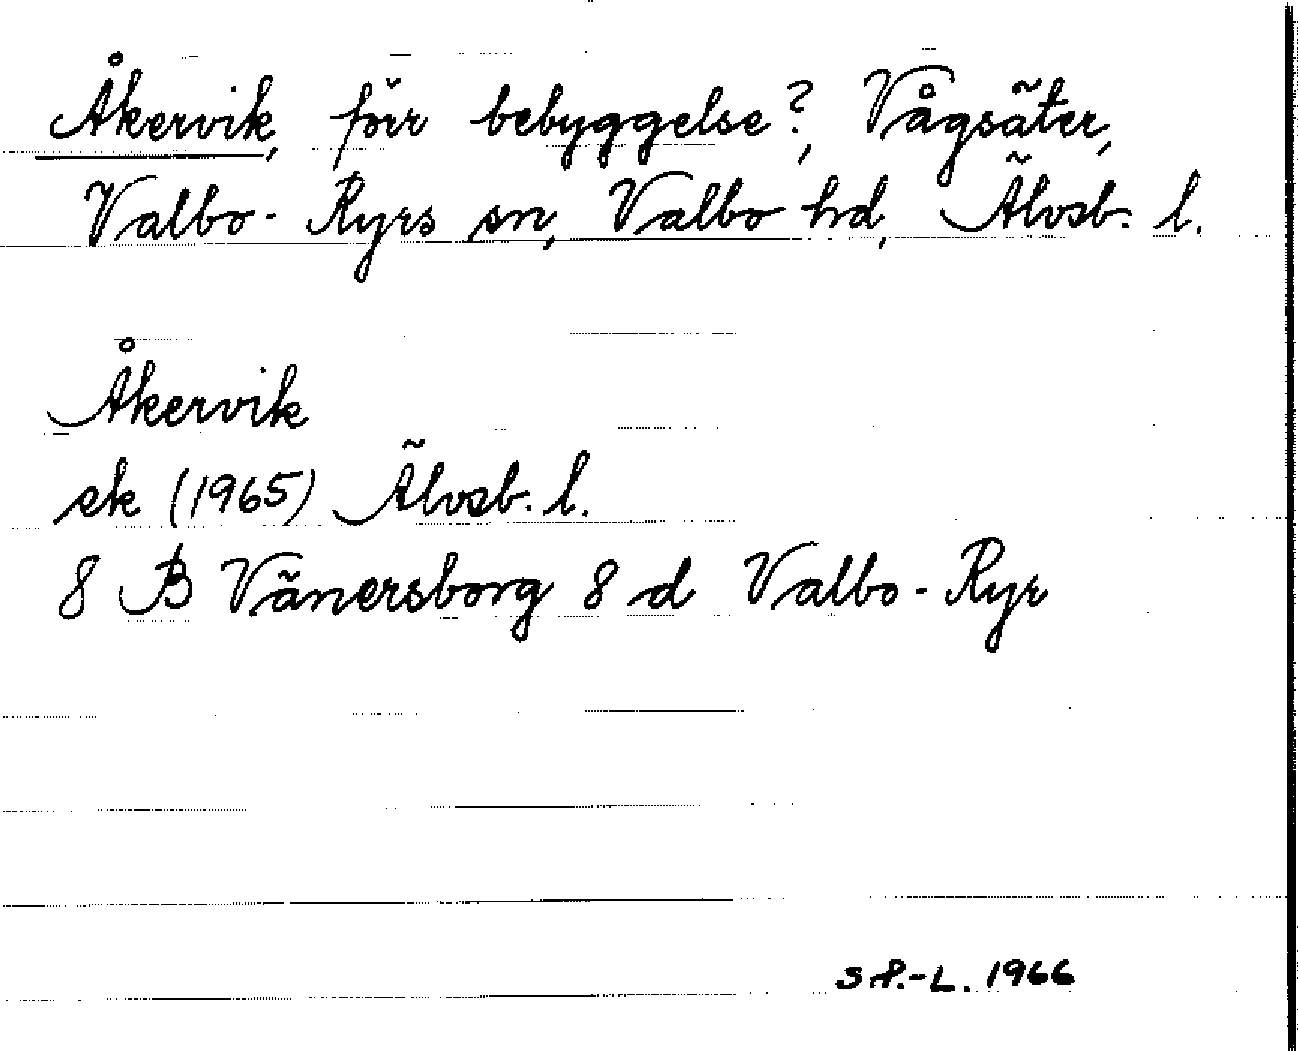 Åkervik, förr bebyggelse?, Vågsäter,
Valbo-Ryrs sn, Valbo hd, Älvsb. l.
Åkervik
ek (1965) Älvsb. l.
8 B Vänersborg 8 d Valbo-Ryr
SP.-L. 1966